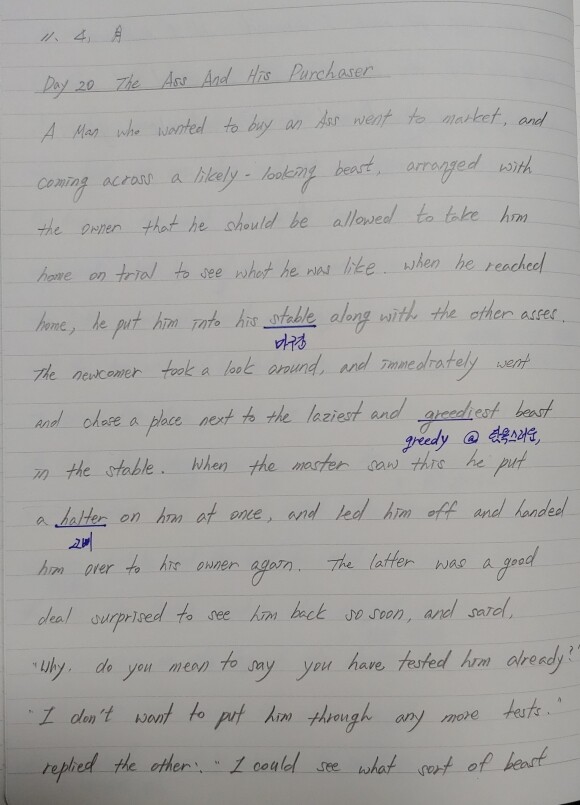 11. 4. 월
Day 20 The Ass And His Purchaser
A Man who wanted to buy an Ass went to market, and
coming across a likely-looking beast, arranged with
the owner that he should be allowed to take him
home on trial to see what he was like. when he reached
home, he put him into his stable along with the other asses.
마구간
The newcomer took a look around, and immediately went
and chose a place next to the laziest and greediest beast
greedy ⓐ 탐욕스러운,
in the stable. When the master saw this he put
a halter on him at once, and led him off and handed
고삐
him over to his owner again. The latter was a good
deal surprised to see him back so soon, and said,
"Why, do you mean to say you have tested him already?"
"I don't want to put him through any more tests."
replied the other: "I could see what sort of beast